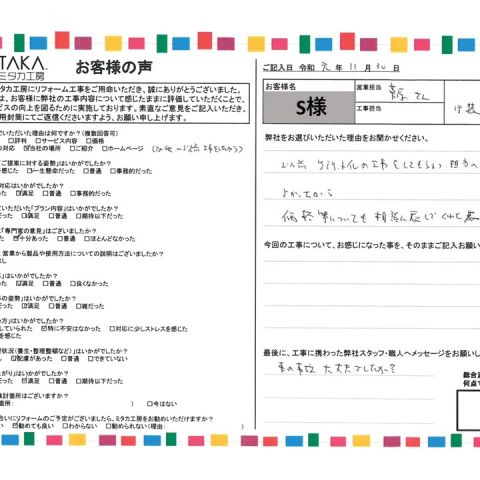 TAKA.
ミタカ工房
お客様の声
タカ工房にリフォーム工事をご用命いただき、誠にありがとうございました。
は、お客様に弊社の工事内容について感じたままに評価していただくことで、
ビスの向上を図るために実施しております。率直なご意見をご記入いただき、
用封筒にてご返信くださいますよう、お願い申し上げます。
いただいた理由は何ですか?(複数回答可)
□評判 □サービス内容 □価格
対応 ☑当社の場所 □ご紹介 □ホームページ
「ご提案に対する姿勢」はいかがでしたか?
を感じた □一生懸命だった □普通 □事務的だった
対応はいかがでしたか?
った ☑満足 □普通 □事務的だった
ていただいた「プラン内容」はいかがでしたか?
った □満足 □普通 □期待以下だった
「専門家の意見」はございましたか?
た ☑十分あった □普通 □ほとんどなかった
営業から製品や使用方法についての説明はございましたか?
はいかがでしたか?
った ☑満足 □普通 □良くなかった
の姿勢」はいかがでしたか?
った ☑満足 □普通 □雑だった
い方」はいかがでしたか?
していられた ☑特に不安はなかった □対応に少しストレスを感じた
スを感じた
状況(養生・整理整頓など)」はいかがでしたか?
し ☑配慮があった □普通 □できていない
がり」はいかがでしたか?
った ☑満足 □普通 □期待以下だった
検討箇所はございますか?
箇所: ) □今はない
合いにリフォームのご予定がございましたら、ミタカ工房をお勧めいただけますか?
い ☑勧めても良い □わからない □勧められない(理由: )
ご記入日 令和 元 年 11 月 30 日
お客様名
S様
営業担当
さん
工事担
弊社をお選びいただいた理由をお聞かせください。
以前
トイレの工事をしてもらい 担当の
よかったから
価格等についても 相談に応じてくれた
今回の工事について、お感じになった事を、そのままご記入お願い
最後に、工事に携わった弊社スタッフ・職人へメッセージをお願いし
車の事故 大丈夫でしたか?
総合
何点で